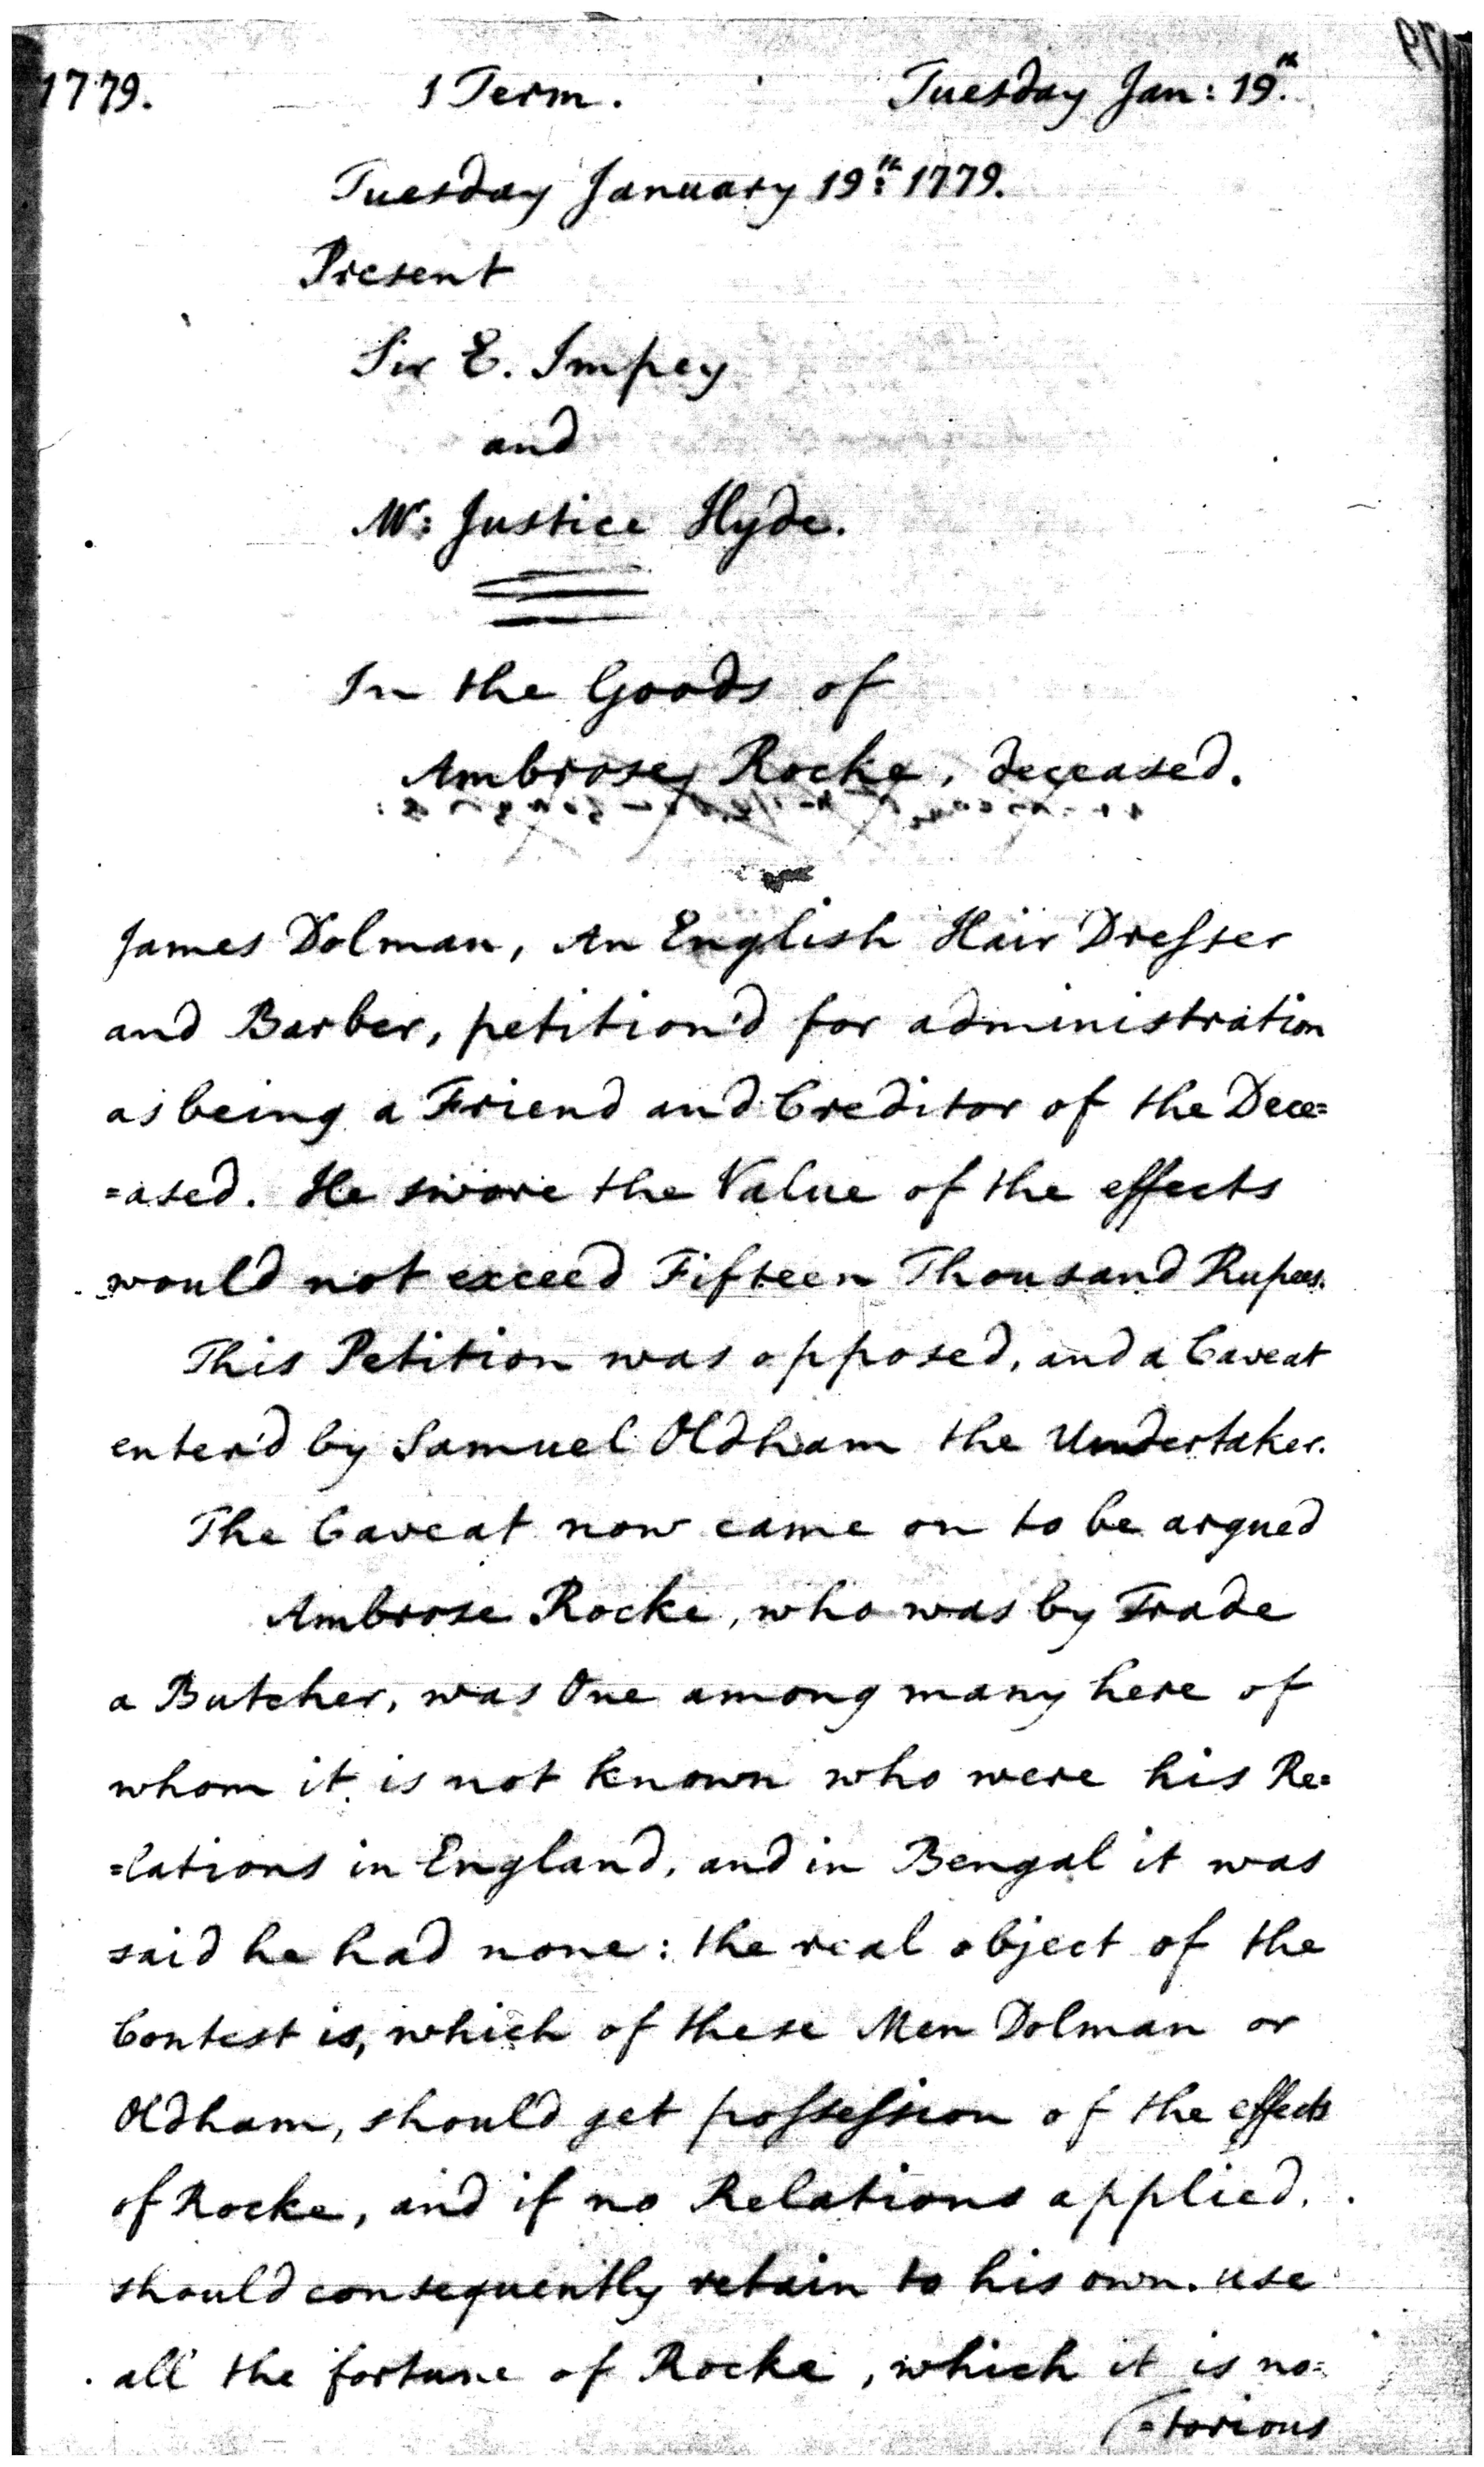 1779. 1 Term. Tuesday Jan: 19th.
Tuesday January 19th: 1779.
Present
Sir E. Impey
and
Mr: Justice Hyde.
In the Goods of
Ambrose Rocke, deceased.
James Dolman, An English Hair Dresser
and Barber, petition'd for administration
as being a Friend and Creditor of the Dece=
=ased. He swore the Value of the effects
would not exceed Fifteen Thousand Rupees.
This Petition was opposed, and a Caveat
enter'd by Samuel Oldham the Undertaker.
The Caveat now came on to be argued
Ambrose Rocke, who was by Trade
a Butcher, was One among many here of
whom it is not known who were his Re=
=lations in England, and in Bengal it was
said he had none: the real object of the
Contest is, which of these Men Dolman or
Oldham, should get possession of the effects
of Rocke, and if no Relations applied,
should consequently retain to his own use
all the fortune of Rocke, which it is no=
=torious